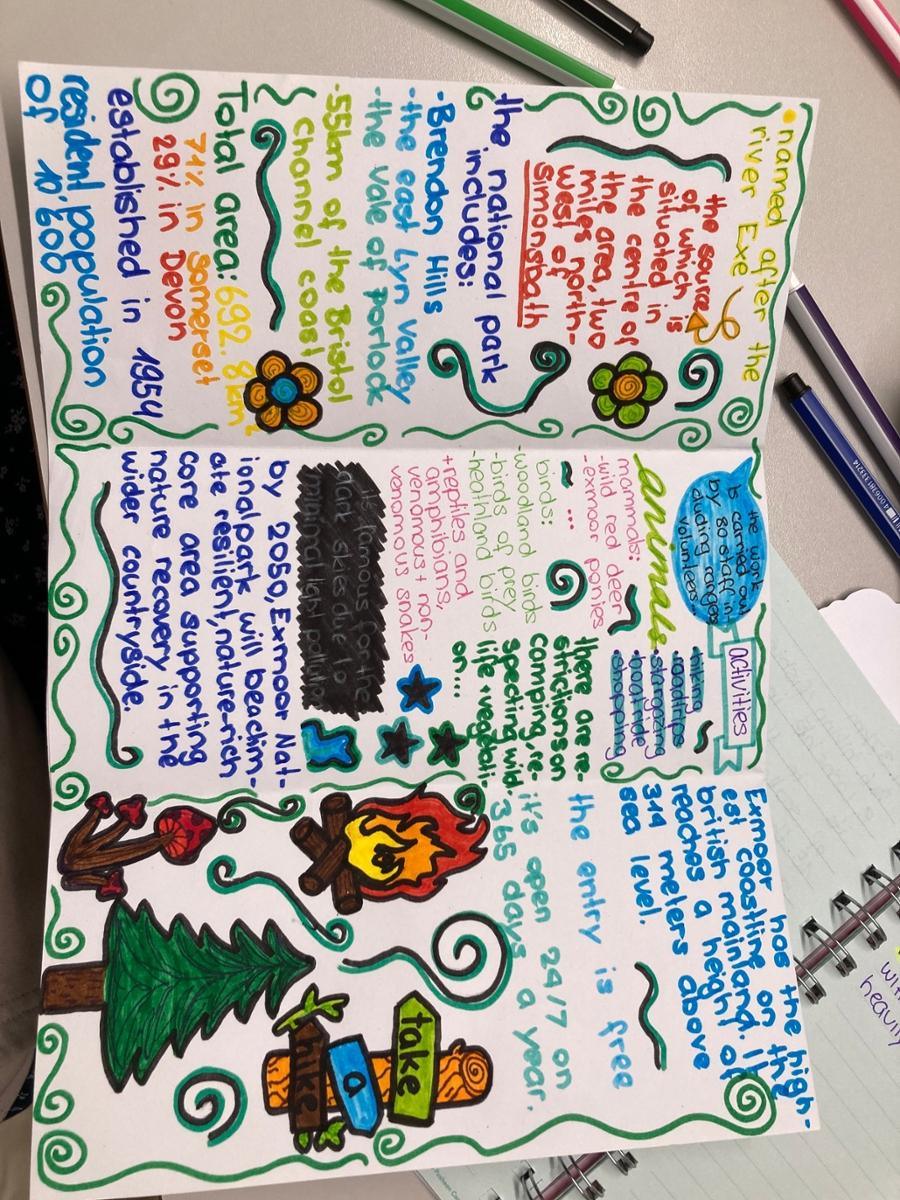 • named after the
river Exe
the source
of which is
situated in
the centre of
the area, two
miles north-
west of
Simonsbath
the national park
includes:
-Brendon Hills
-the east Lyn Valley
-the vale of porlock
-55km of the Bristol
Channel coast
Total area: 692.8km²
71% in Somerset
29% in Devon
established in 1954
resident population
of 10.600
the work
is carried out
by 80 staff in-
cluding rangers
volunteers...
activities
-hiking
-roadtrips
-stargazing
-boat ride
-shopping
animals
mammals:
-wild red deer
-exmoor ponies
...
birds:
-woodland birds
-birds of prey
-heathland birds
+reptiles and
amphibians,
venomous + non-
venomous snakes
there are re-
strictions on
camping, re-
specting wild
life + vegetati-
on....
it's famous for the
dark skies due to
minimal light pollution
by 2050, Exmoor Nat-
ionalpark will beaclim-
ate resilient, nature-rich
core area supporting
nature recovery in the
wider countryside.
Exmoor has the high-
est coastline on the
british mainland. It
reaches a height of
314 meters above
sea level.
the entry is free
it's open 24/7 on
365 days a year.
take
a
hike
with
heavily